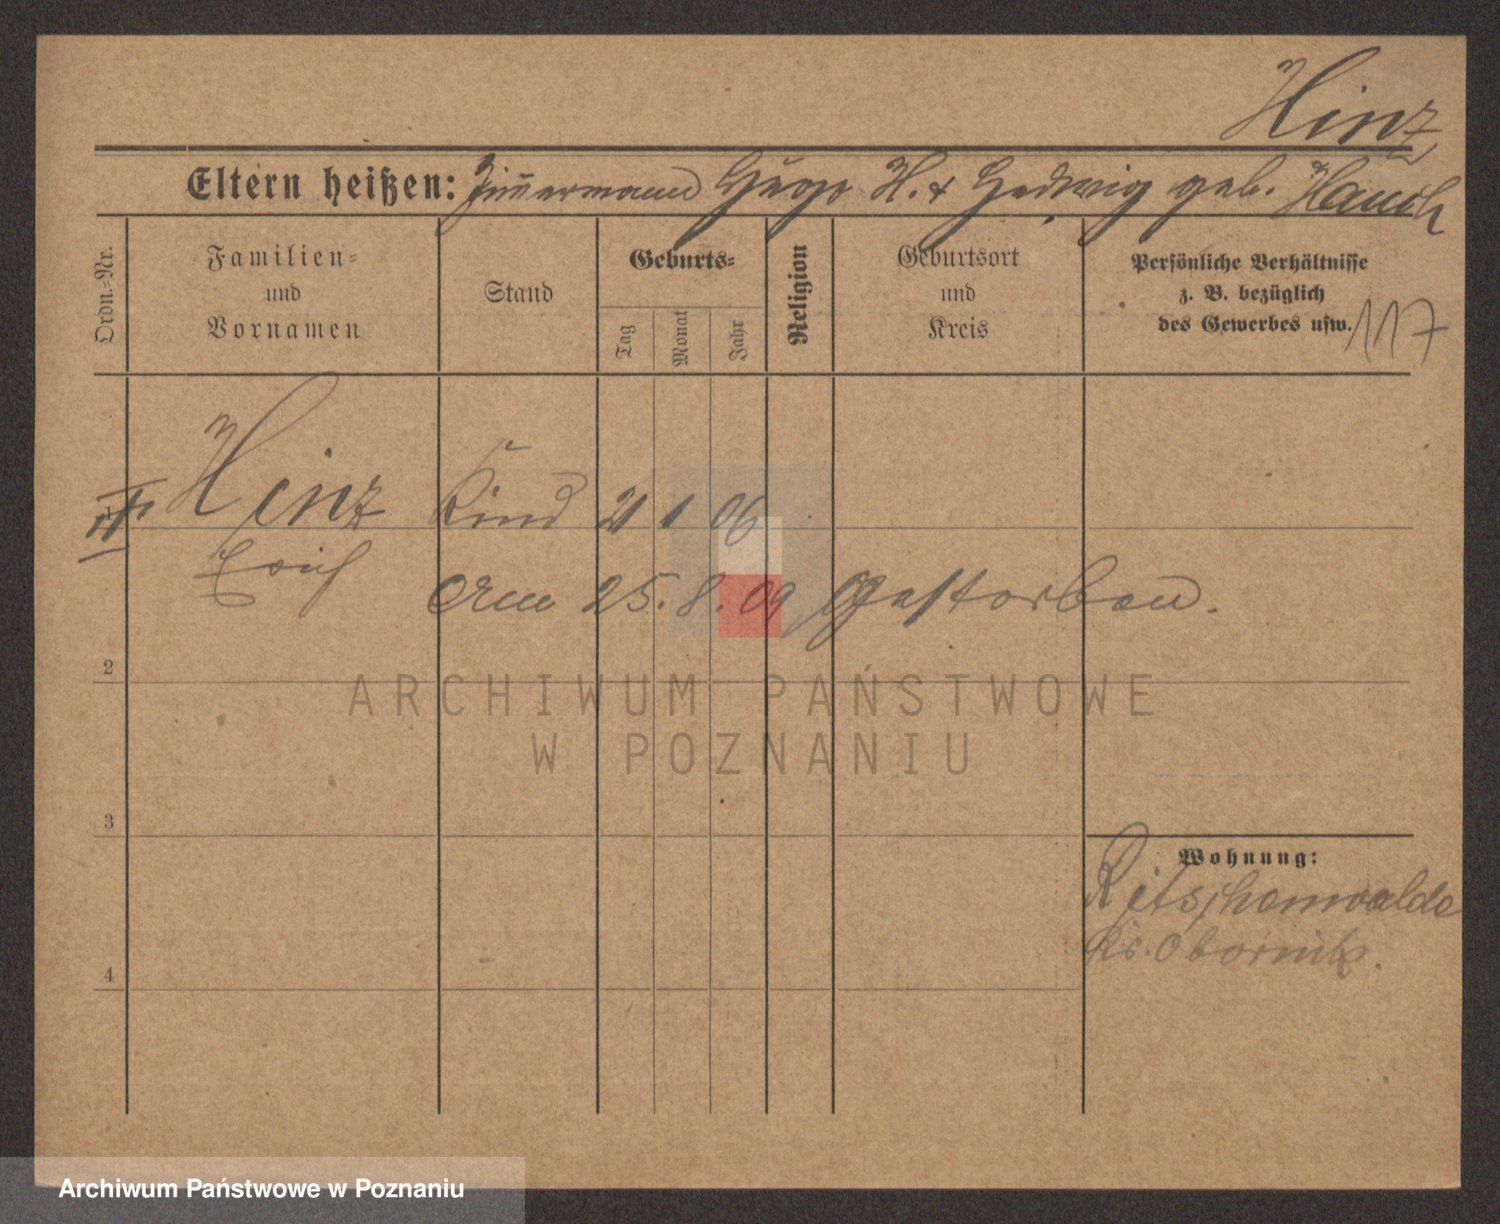 Hinz
Eltern heißen: Zimmermann Hugo H. & Hedwig geb. Hauch
Ordn.-Nr.
Familien-
und
Vornamen
Stand
Geburts-
Tag
Monat
Jahr
Religion
Geburtsort
und
Kreis
Persönliche Verhältnisse
z. B. bezüglich
des Gewerbes usw.
117
1 Hinz Kind 21 1 06
Erich
Am 25. 8. 09 Gestorben.
2
3
4
Wohnung:
Ritschenwalde
Kr. Obornik.
ARCHIWUM PAŃSTWOWE
W POZNANIU
Archiwum Państwowe w Poznaniu